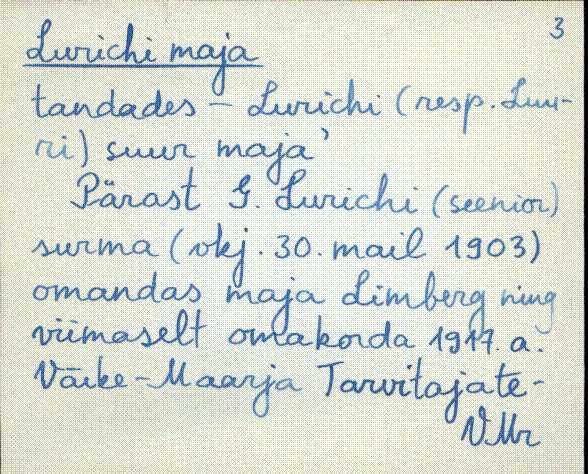 3
Lurichi maja
tandades – Lurichi (resp. Luu-
ri) suur maja’
Pärast G. Lurichi (seenior)
surma (vkj. 30. mail 1903)
omandas maja Limberg ning
viimaselt omakorda 1917. a.
Väike-Maarja Tarvitajate-
VMr